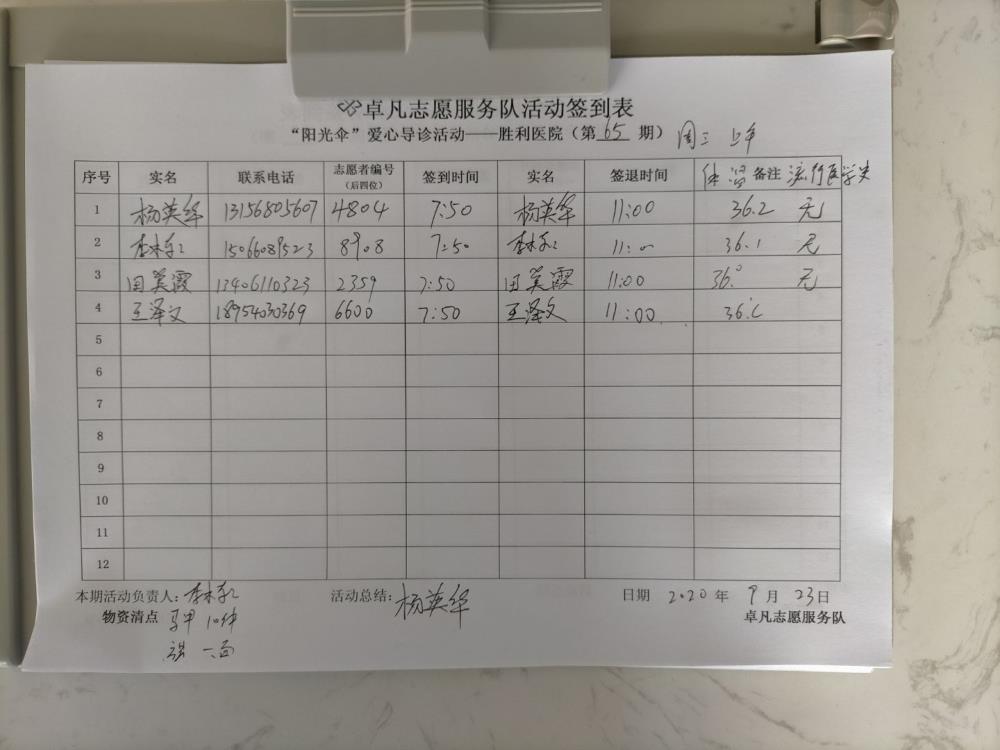 卓凡志愿服务队活动签到表
“阳光伞”爱心导诊活动——胜利医院（第 65 期） 周三 上午
序号 实名 联系电话 志愿者编号（后四位） 签到时间 实名 签退时间 体温 备注 流行医学史
1 杨英华 13156805607 4804 7:50 杨英华 11:00 36.2 无
2 李林 15066089523 8908 7:50 李林 11:00 36.1 无
3 田英霞 13406110323 2359 7:50 田英霞 11:00 36.° 无
4 王泽文 18954030369 6600 7:50 王泽文 11:00
5
6
7
8
9
10
11
12
本期活动负责人： 活动总结：杨英华 日期 2020 年 9 月 23 日
物资清点 马甲 10件 卓凡志愿服务队
旗 一面